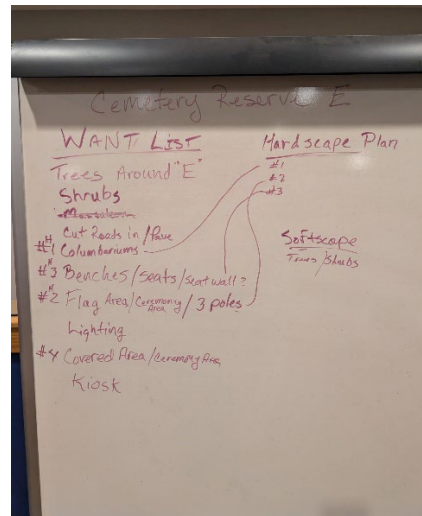 Cemetery Reserve E
WANT LIST
Trees Around "E"
Shrubs
Cut Roads in / Pave
#1 Columbariums
#3 Benches/seats/seat wall?
#2 Flag Area/Ceremony Area / 3 poles
Lighting
#4 Covered Area/Ceremony Area
Kiosk
Hardscape Plan
#1
#2
#3
Softscape
Trees/Shrubs